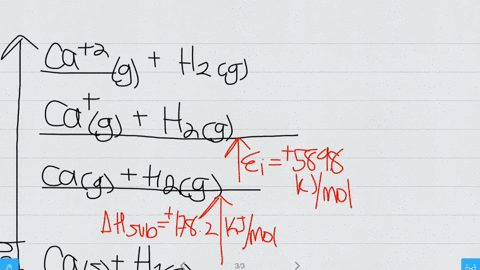 Ca⁺²(g) + H₂(g)
Ca⁺(g) + H₂(g)
εi = ⁺5898
kJ/mol
Ca(g) + H₂(g)
ΔHsub = ⁺178.2 kJ/mol
Ca(s) + H₂
3/3